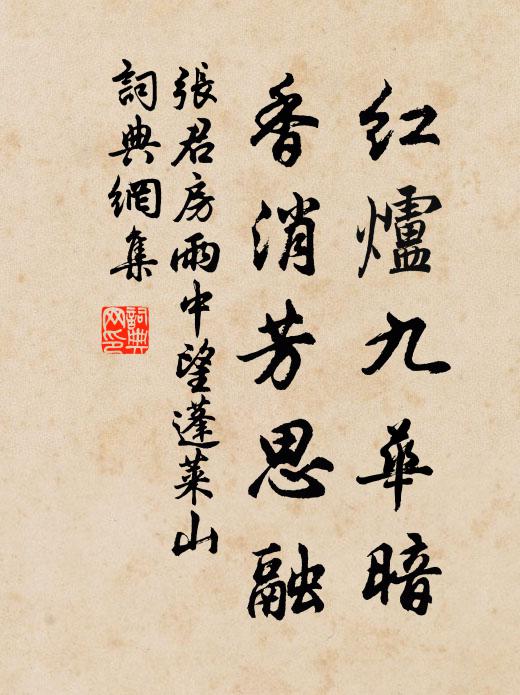 紅爐九華暗
香消芳思融
張君房雨中望蓬萊山
詞典網集
詞典
网印